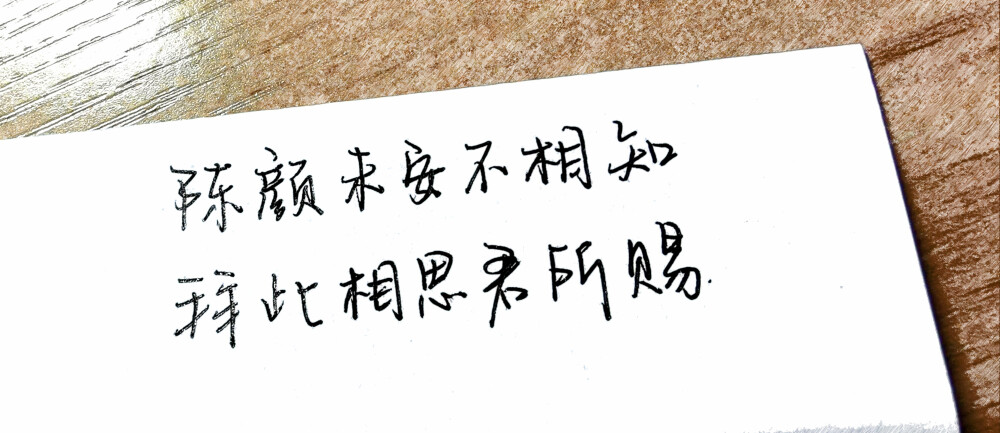 陈颜未安不相知
拜此相思君所赐.